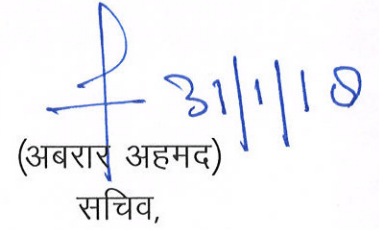 31/1/18
(अबरार अहमद)
सचिव,